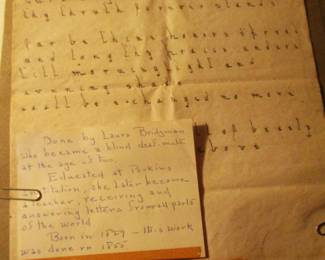 thy truth forever stands
far be thine honors spread
and long thy praise endure
till morning light and
evening shade
shall be exchanged no more
of beasly
Done by Laura Bridgman
who became a blind deaf-mute
at the age of two
Educated at Perkins
Institution, she later become
a teacher, receiving and
answering letters from all parts
of the world
Born in 1829 – this work
was done in 1850